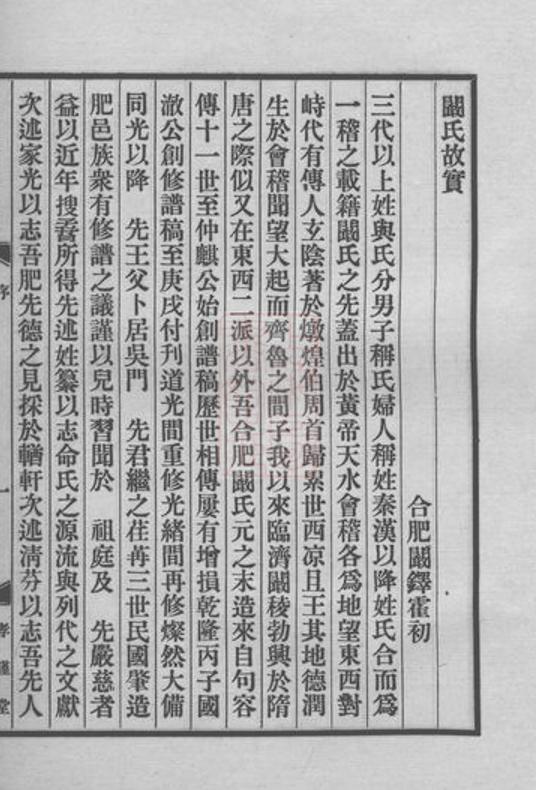 闞氏故實
合肥闞鐸霍初
三代以上姓與氏分男子稱氏婦人稱姓秦漢以降姓氏合而爲
一稽之載籍闞氏之先蓋出於黃帝天水會稽各爲地望東西對
峙代有傳人玄陰著於燉煌伯周首歸累世西涼且王其地德潤
生於會稽聞望大起而齊魯之間子我以來臨濟闞稜勃興於隋
唐之際似又在東西二派以外吾合肥闞氏元之末造來自句容
傳十一世至仲麒公始創譜稿歷世相傳屢有增損乾隆丙子國
澂公創修譜稿至庚戌付刊道光間重修光緒間再修燦然大備
同光以降 先王父卜居吳門 先君繼之荏苒三世民國肇造
肥邑族衆有修譜之議謹以兒時習聞於 祖庭及 先嚴慈者
益以近年搜羅所得先述姓纂以志命氏之源流與列代之文獻
次述家光以志吾肥先德之見採於輶軒次述淸芬以志吾先人
序
一
孝謹堂